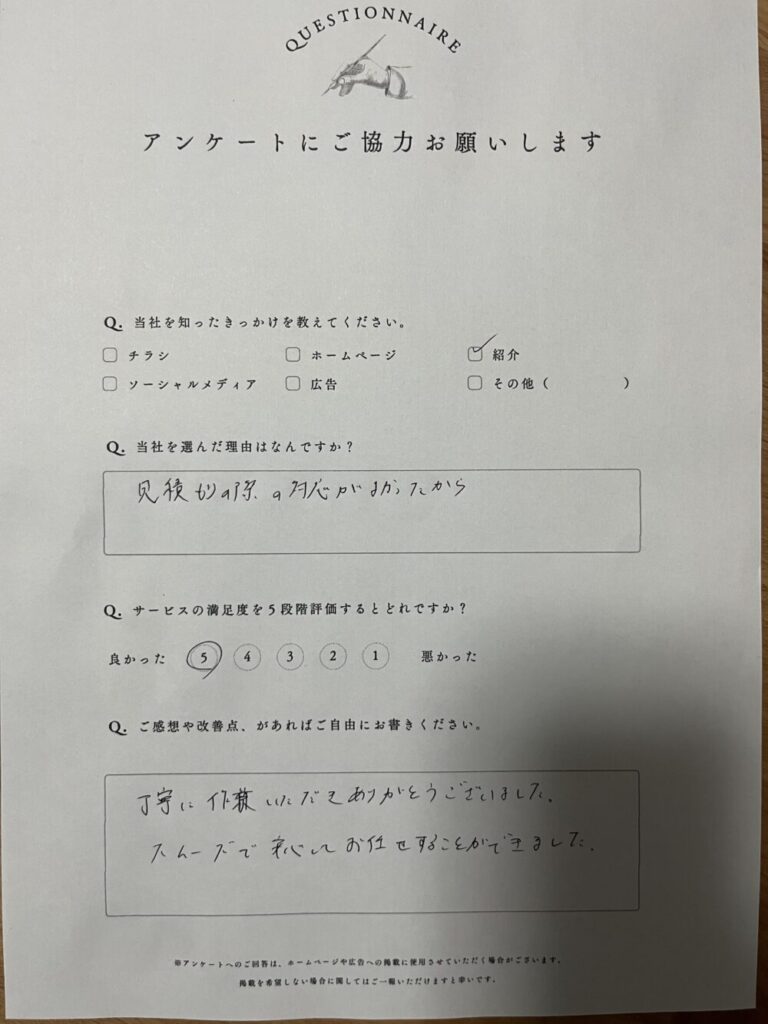 QUESTIONNAIRE
アンケートにご協力お願いします
Q. 当社を知ったきっかけを教えてください。
チラシ ホームページ 紹介
ソーシャルメディア 広告 その他（ ）
Q. 当社を選んだ理由はなんですか？
見積もりの際の対応がよかったから
Q. サービスの満足度を5段階評価するとどれですか？
良かった 5 4 3 2 1 悪かった
Q. ご感想や改善点、があればご自由にお書きください。
丁寧に作業いただきありがとうございました。
スムーズで安心してお任せすることができました。
※アンケートへのご回答は、ホームページや広告への掲載に使用させていただく場合がございます。
掲載を希望しない場合に関してはご一報いただけますと幸いです。